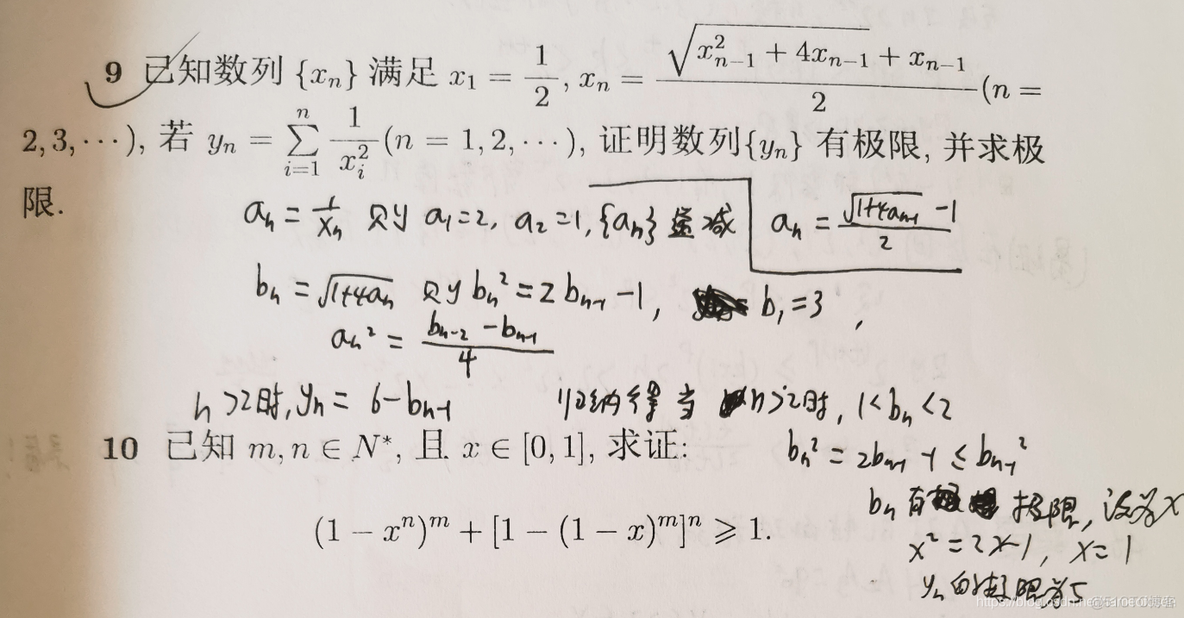 9 已知数列 {xₙ} 满足 x₁ = 1/2, xₙ = (√(xₙ₋₁² + 4xₙ₋₁) + xₙ₋₁)/2 (n =
2, 3, ⋯), 若 yₙ = ∑ᵢ₌₁ⁿ 1/xᵢ² (n = 1, 2, ⋯), 证明数列{yₙ} 有极限, 并求极
限.
aₙ = 1/xₙ 则 a₁=2, a₂=1, {aₙ} 递减
aₙ = (√(1+4aₙ₋₁) - 1)/2
bₙ = √(1+4aₙ) 则 bₙ² = 2bₙ₋₁ - 1, b₁=3,
aₙ² = (bₙ₋₂ - bₙ₋₁)/4
n>2时, yₙ = 6 - bₙ₋₁
归纳得当 n>2时, 1<bₙ<2
bₙ² = 2bₙ₋₁ - 1 ≤ bₙ₋₁²
bₙ 有极限, 设为x
x² = 2x-1, x=1
yₙ的极限为5
10 已知 m, n ∈ N*, 且 x ∈ [0, 1], 求证:
(1 − xⁿ)ᵐ + [1 − (1 − x)ᵐ]ⁿ ⩾ 1.